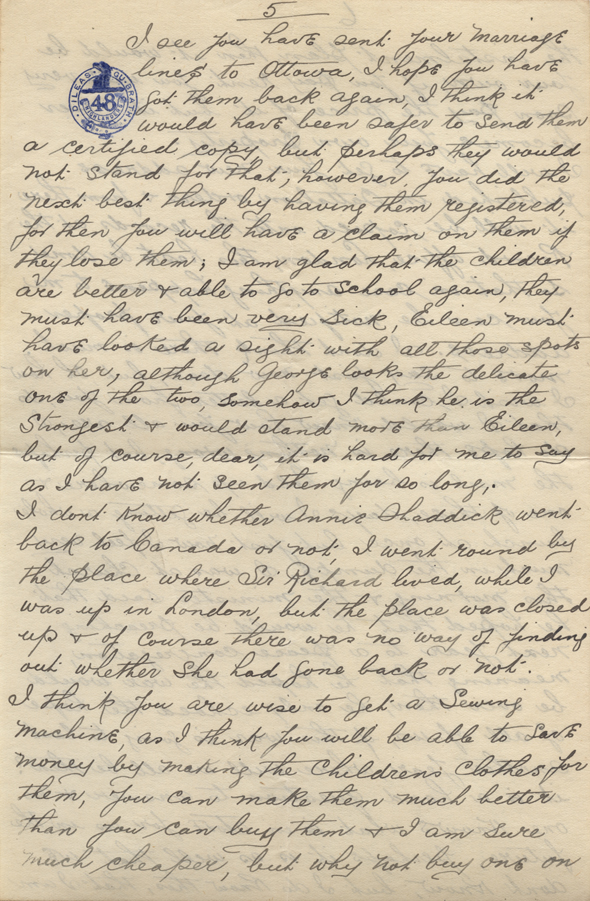 5
I see you have sent your marriage
lines to Ottowa, I hope you have
got them back again, I think it
would have been safer to send them
DILEAS GU BRATH
48
HIGHLANDERS
a certified copy, but perhaps they would
not stand for that, however, you did the
next best thing by having them registered,
for then you will have a claim on them if
they lose them; I am glad that the children
are better & able to go to school again, they
must have been very sick, Eileen must
have looked a sight with all those spots
on her, although George looks the delicate
one of the two, somehow I think he is the
strongest & would stand more than Eileen,
but of course, dear, it is hard for me to say
as I have not seen them for so long,.
I dont know whether Annie Shaddick went
back to Canada or not, I went round by
the place where Sir Richard lived, while I
was up in London, but the place was closed
up & of course there was no way of finding
out whether she had gone back or not.
I think you are wise to get a sewing
machine, as I think you will be able to save
money by making the childrens clothes, for
them, you can make them much better
than you can buy them & I am sure
much cheaper, but why not buy one on